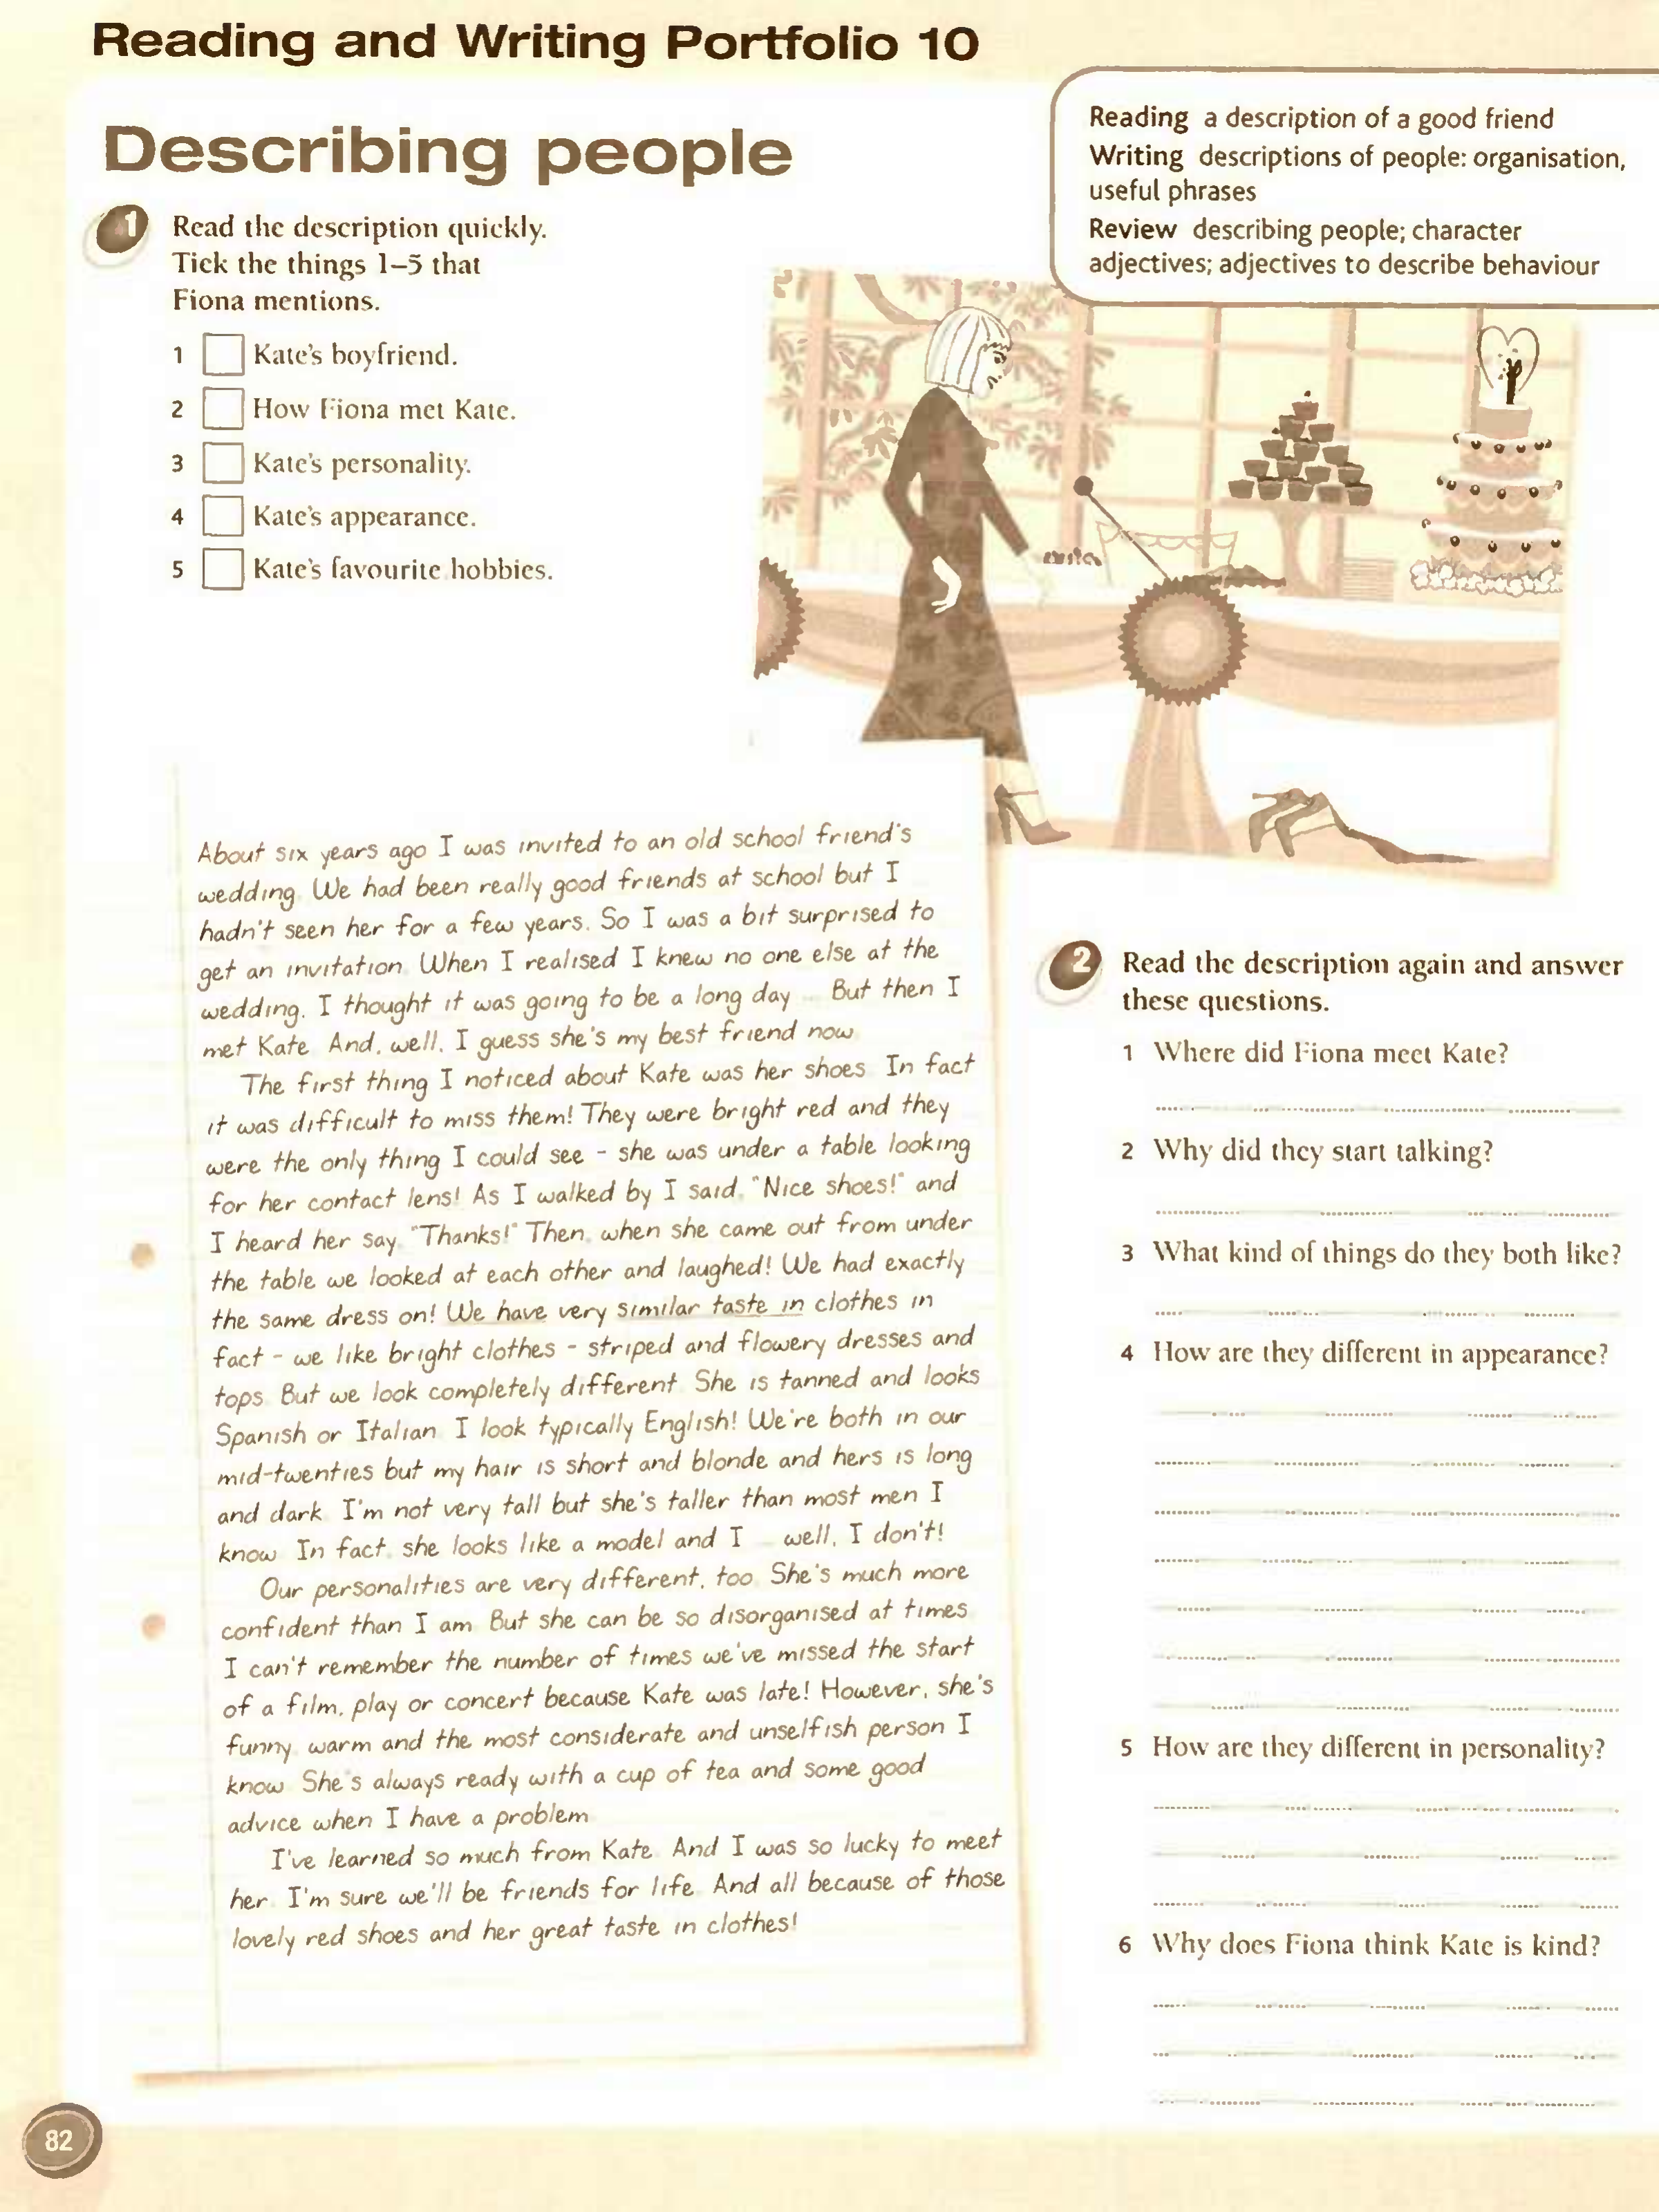 Reading and Writing Portfolio 10
Describing people
Reading a description of a good friend
Writing descriptions of people: organisation,
useful phrases
Review describing people; character
adjectives; adjectives to describe behaviour
1 Read the description quickly.
Tick the things 1–5 that
Fiona mentions.
1 Kate's boyfriend.
2 How Fiona met Kate.
3 Kate's personality.
4 Kate's appearance.
5 Kate's favourite hobbies.
About six years ago I was invited to an old school friend's
wedding. We had been really good friends at school but I
hadn't seen her for a few years. So I was a bit surprised to
get an invitation. When I realised I knew no one else at the
wedding, I thought it was going to be a long day ... But then I
met Kate. And, well, I guess she's my best friend now.
The first thing I noticed about Kate was her shoes. In fact
it was difficult to miss them! They were bright red and they
were the only thing I could see – she was under a table looking
for her contact lens! As I walked by I said, "Nice shoes!" and
I heard her say, "Thanks!" Then, when she came out from under
the table we looked at each other and laughed! We had exactly
the same dress on! We have very similar taste in clothes in
fact – we like bright clothes – striped and flowery dresses and
tops. But we look completely different. She is tanned and looks
Spanish or Italian. I look typically English! We're both in our
mid-twenties but my hair is short and blonde and hers is long
and dark. I'm not very tall but she's taller than most men I
know. In fact, she looks like a model and I ... well, I don't!
Our personalities are very different, too. She's much more
confident than I am. But she can be so disorganised at times.
I can't remember the number of times we've missed the start
of a film, play or concert because Kate was late! However, she's
funny, warm and the most considerate and unselfish person I
know. She's always ready with a cup of tea and some good
advice when I have a problem.
I've learned so much from Kate. And I was so lucky to meet
her. I'm sure we'll be friends for life. And all because of those
lovely red shoes and her great taste in clothes!
2 Read the description again and answer
these questions.
1 Where did Fiona meet Kate?
2 Why did they start talking?
3 What kind of things do they both like?
4 How are they different in appearance?
5 How are they different in personality?
6 Why does Fiona think Kate is kind?
82